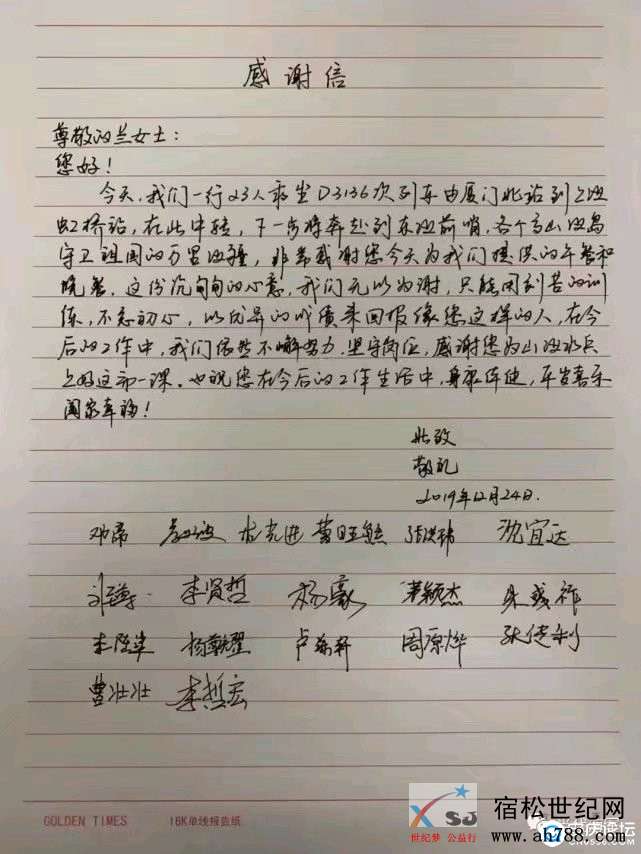 感谢信
尊敬的兰女士：
您好！
今天，我们一行23人乘坐D3136次列车由厦门北站到上海
虹桥站，在此中转，下一步将奔赴到东海前哨，各个高山海岛
守卫祖国的万里海疆，非常感谢您今天为我们提供的午餐和
晚餐。这份沉甸甸的心意，我们无以为谢，只能用刻苦的训
练，不忘初心，以优异的成绩来回报像您这样的人，在今
后的工作中，我们依然不懈努力，坚守岗位，感谢您为山海水兵
上好这第一课。也祝您在今后的工作生活中，身康体健，平安喜乐
阖家幸福！
此致
敬礼
2019年12月24日.
邓帝 先进 黄旺 沈宜达
李贤哲 杨豪 颖杰 朱
杨 耀 卢 轩 周原烨 张
曹壮壮 李哲宏
GOLDEN TIMES 16K单线报告纸
XSJ
世纪梦 公益行
宿松世纪网
www.ah788.com